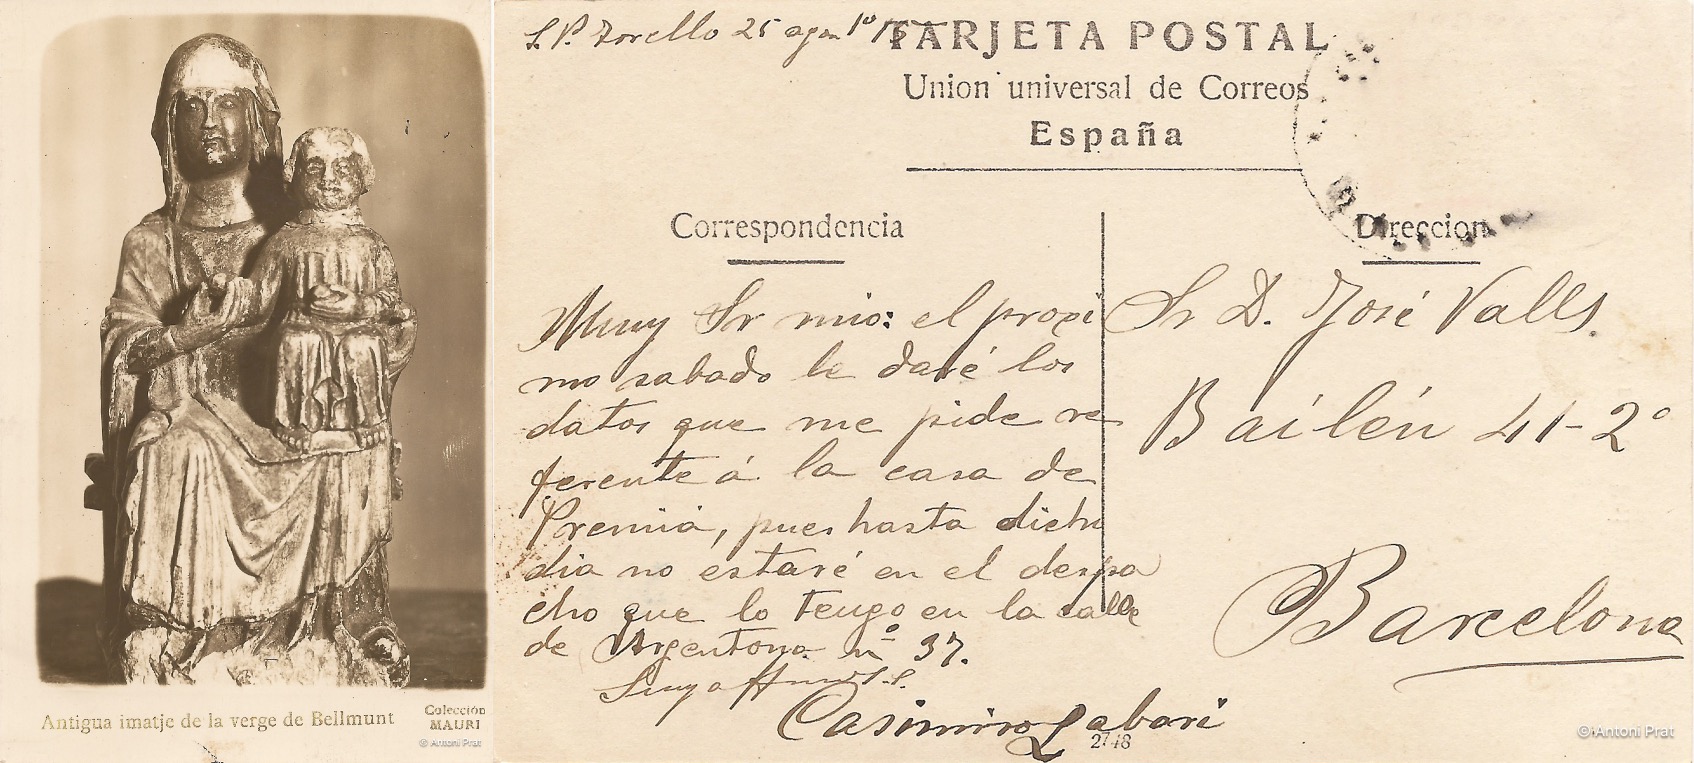 Antigua imatje de la verge de Bellmunt
Colección
MAURI
© Antoni Prat
S. P. Torello 25 1915
TARJETA POSTAL
Union universal de Correos
España
Correspondencia
Muy Sr mio: el proxi
mo sabado le daré los
datos que me pide re
ferente á la casa de
Premiá, pues hasta dicho
dia no estaré en el despa
cho que lo tengo en la calle
de Argentona nº 37.
Suyo
Casimiro Gabarí
2748
Direccion
Sr D. José Valls.
Bailén 41-2º
Barcelona
© Antoni Prat